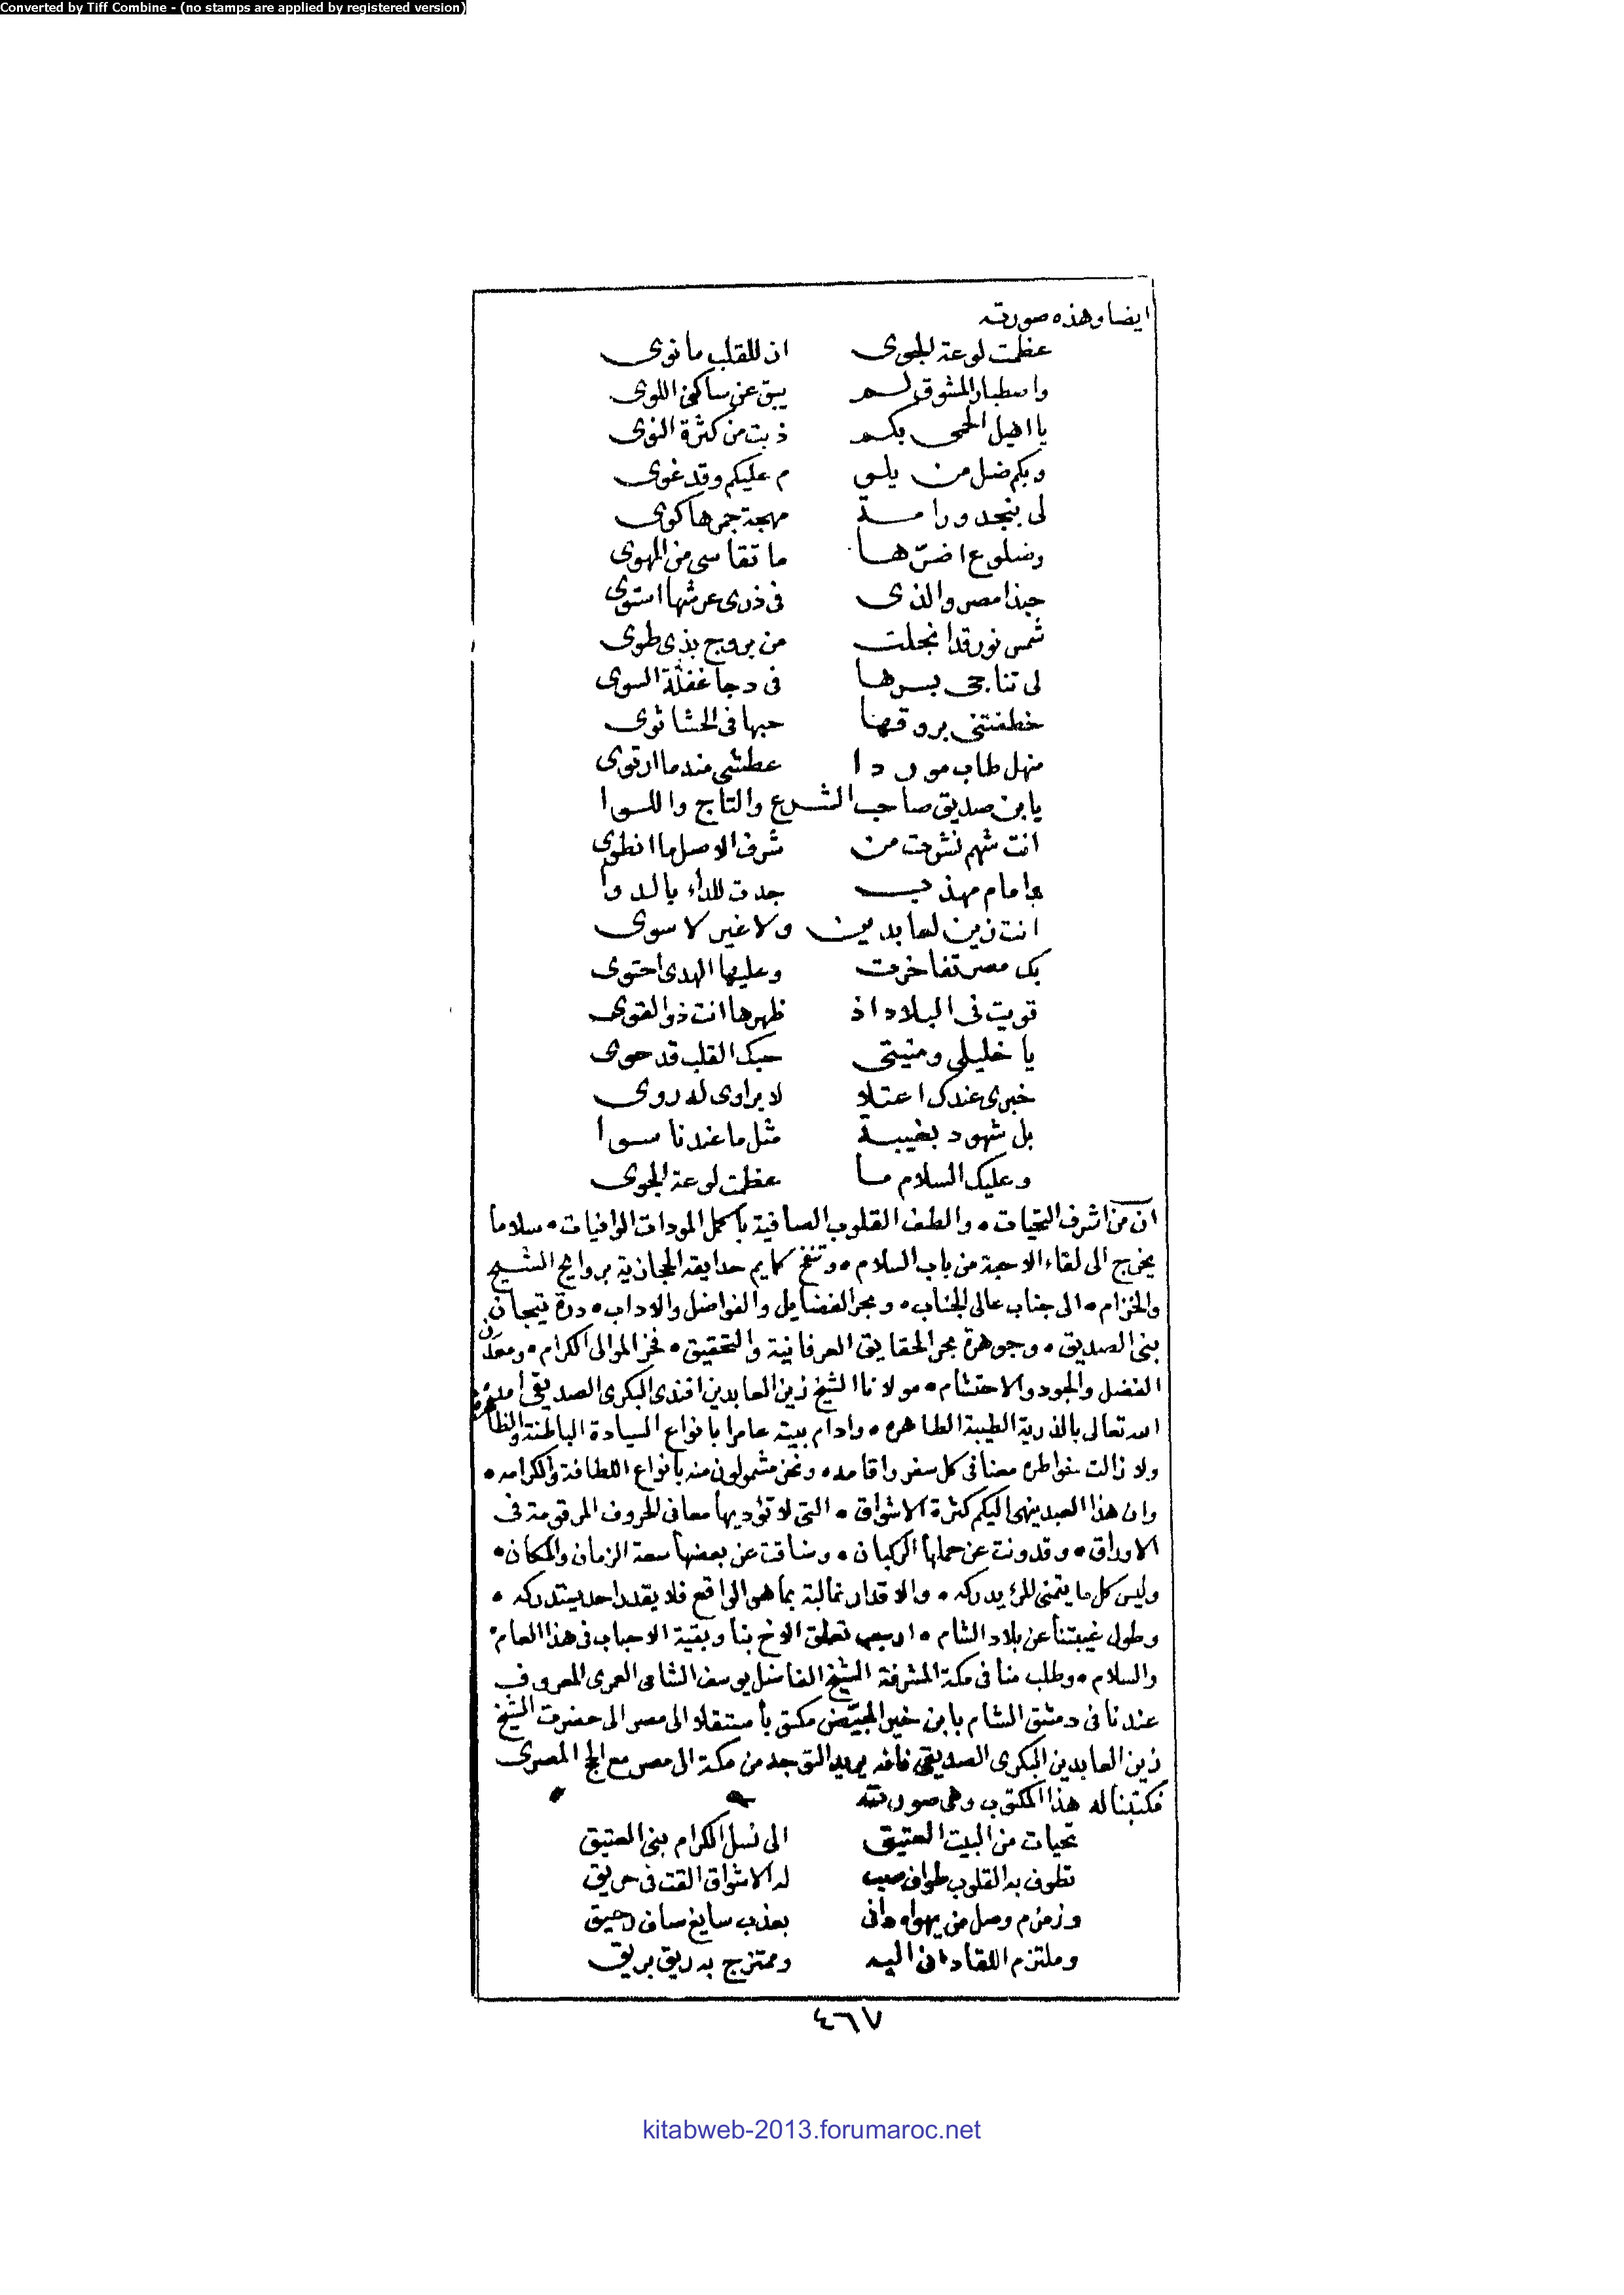 Converted by Tiff Combine - (no stamps are applied by registered version)
ايضا وهذه صورته
عظمت لوعة الجوى ان للقلب ما نوى
واصطبار المشوق لم يبق عن ساكنى اللوى
يا اهيل الحمى بكم ذبت من كثرة النوى
وبكم ضل من يلو م عليكم وقد غوى
لى بنجد ورامة مهجة جمرها كوى
وضلوع اضرّها ما تقاسى من الهوى
حبذا مصر والذى فى ذرى عرشها استوى
شمس نور قد انجلت من بروج بذى طوى
لى تناجى بسرها فى دجا غفلة السوى
خطفتنى بروقها حبها فى الحشا ثوى
منهل طاب موردا عطشى منه ما ارتوى
يا بن صديق صاحب الشرع والتاج واللوا
انت شهم نشرت من شرف الاصل ما انطوى
وامام مهذب جدت للداء بالدوا
انت زين لعابدين ولا غير لا سوى
بك مصر تفاخرت وعليها الهدى احتوى
قويت فى البلاد اذ ظهرها انت ذو القوى
يا خليلى ومنيتى حبك القلب قد حوى
خبرى عندك اعتلا لا براوى له روى
بل شهود بغيبة مثل ما عندنا سوا
وعليك السلام ما عظمت لوعة الجوى
ان من اشرف التحيات والطف القلوب الصافية بأكمل المودات الوافيات سلاما
يخرج الى لقاء الاحبة من باب السلام وتنفح كمايم حدايقه الحجازية بروايح الشيح
والخزام الى جناب عالى الجناب وبحر الفضايل والفواضل والاداب درة تيجان
بنى الصديق وجوهرة بحر الحقايق العرفانية والتحقيق فخر الموالى الكرام ومعدن
الفضل والجود والاحتشام مولانا الشيخ زين العابدين افندى البكرى الصديقى امده
الله تعالى بالذرية الطيبة الطاهره وادام بيته عامرا بانواع السيادة الباطنة والظاهرة
ولا زالت خواطره معنا فى كل سفر واقامه ونحن مشمولون منه بأنواع اللطافة والكرامه
وان هذا العبد ينهى اليكم كثرة الاشواق التى لا تؤديها معانى الحروف المرقومة فى
الاوراق وقد ونت عن حملها الركبان وضاقت عن بعضها سعة الزمان والمكان
وليس كل ما يتمنى المرء يدركه والاقدار غالبة بما هو الواقع فلا يقدر احد يستدركه
وطول غيبتنا عن بلاد الشام تعلق الاخ بنا وبقية الاحباب فى هذا العام
والسلام وطلب منا فى مكة المشرفة الشيخ الفاضل يوسف الشامى العمرى المعروف
عندنا فى دمشق الشام بابن خير مكتوبا ستقلا الى مصر الى حضرت الشيخ
زين العابدين البكرى الصديقى فانه يريد التوجه من مكة الى مصر مع الحج المصرى
فكتبنا له هذا المكتوب وهى صورته
تحيات من البيت العتيق الى نسل الكرام بنى العتيق
تطوف به القلوب طواف صب له الاشواق القت فى حريق
وزمزم وصل من يهواه دانى بعذب سايغ صاف رحيق
وملتزم اللقا دانى اليه وممتزج به ريق بريق
٤٦٧
kitabweb-2013.forumaroc.net